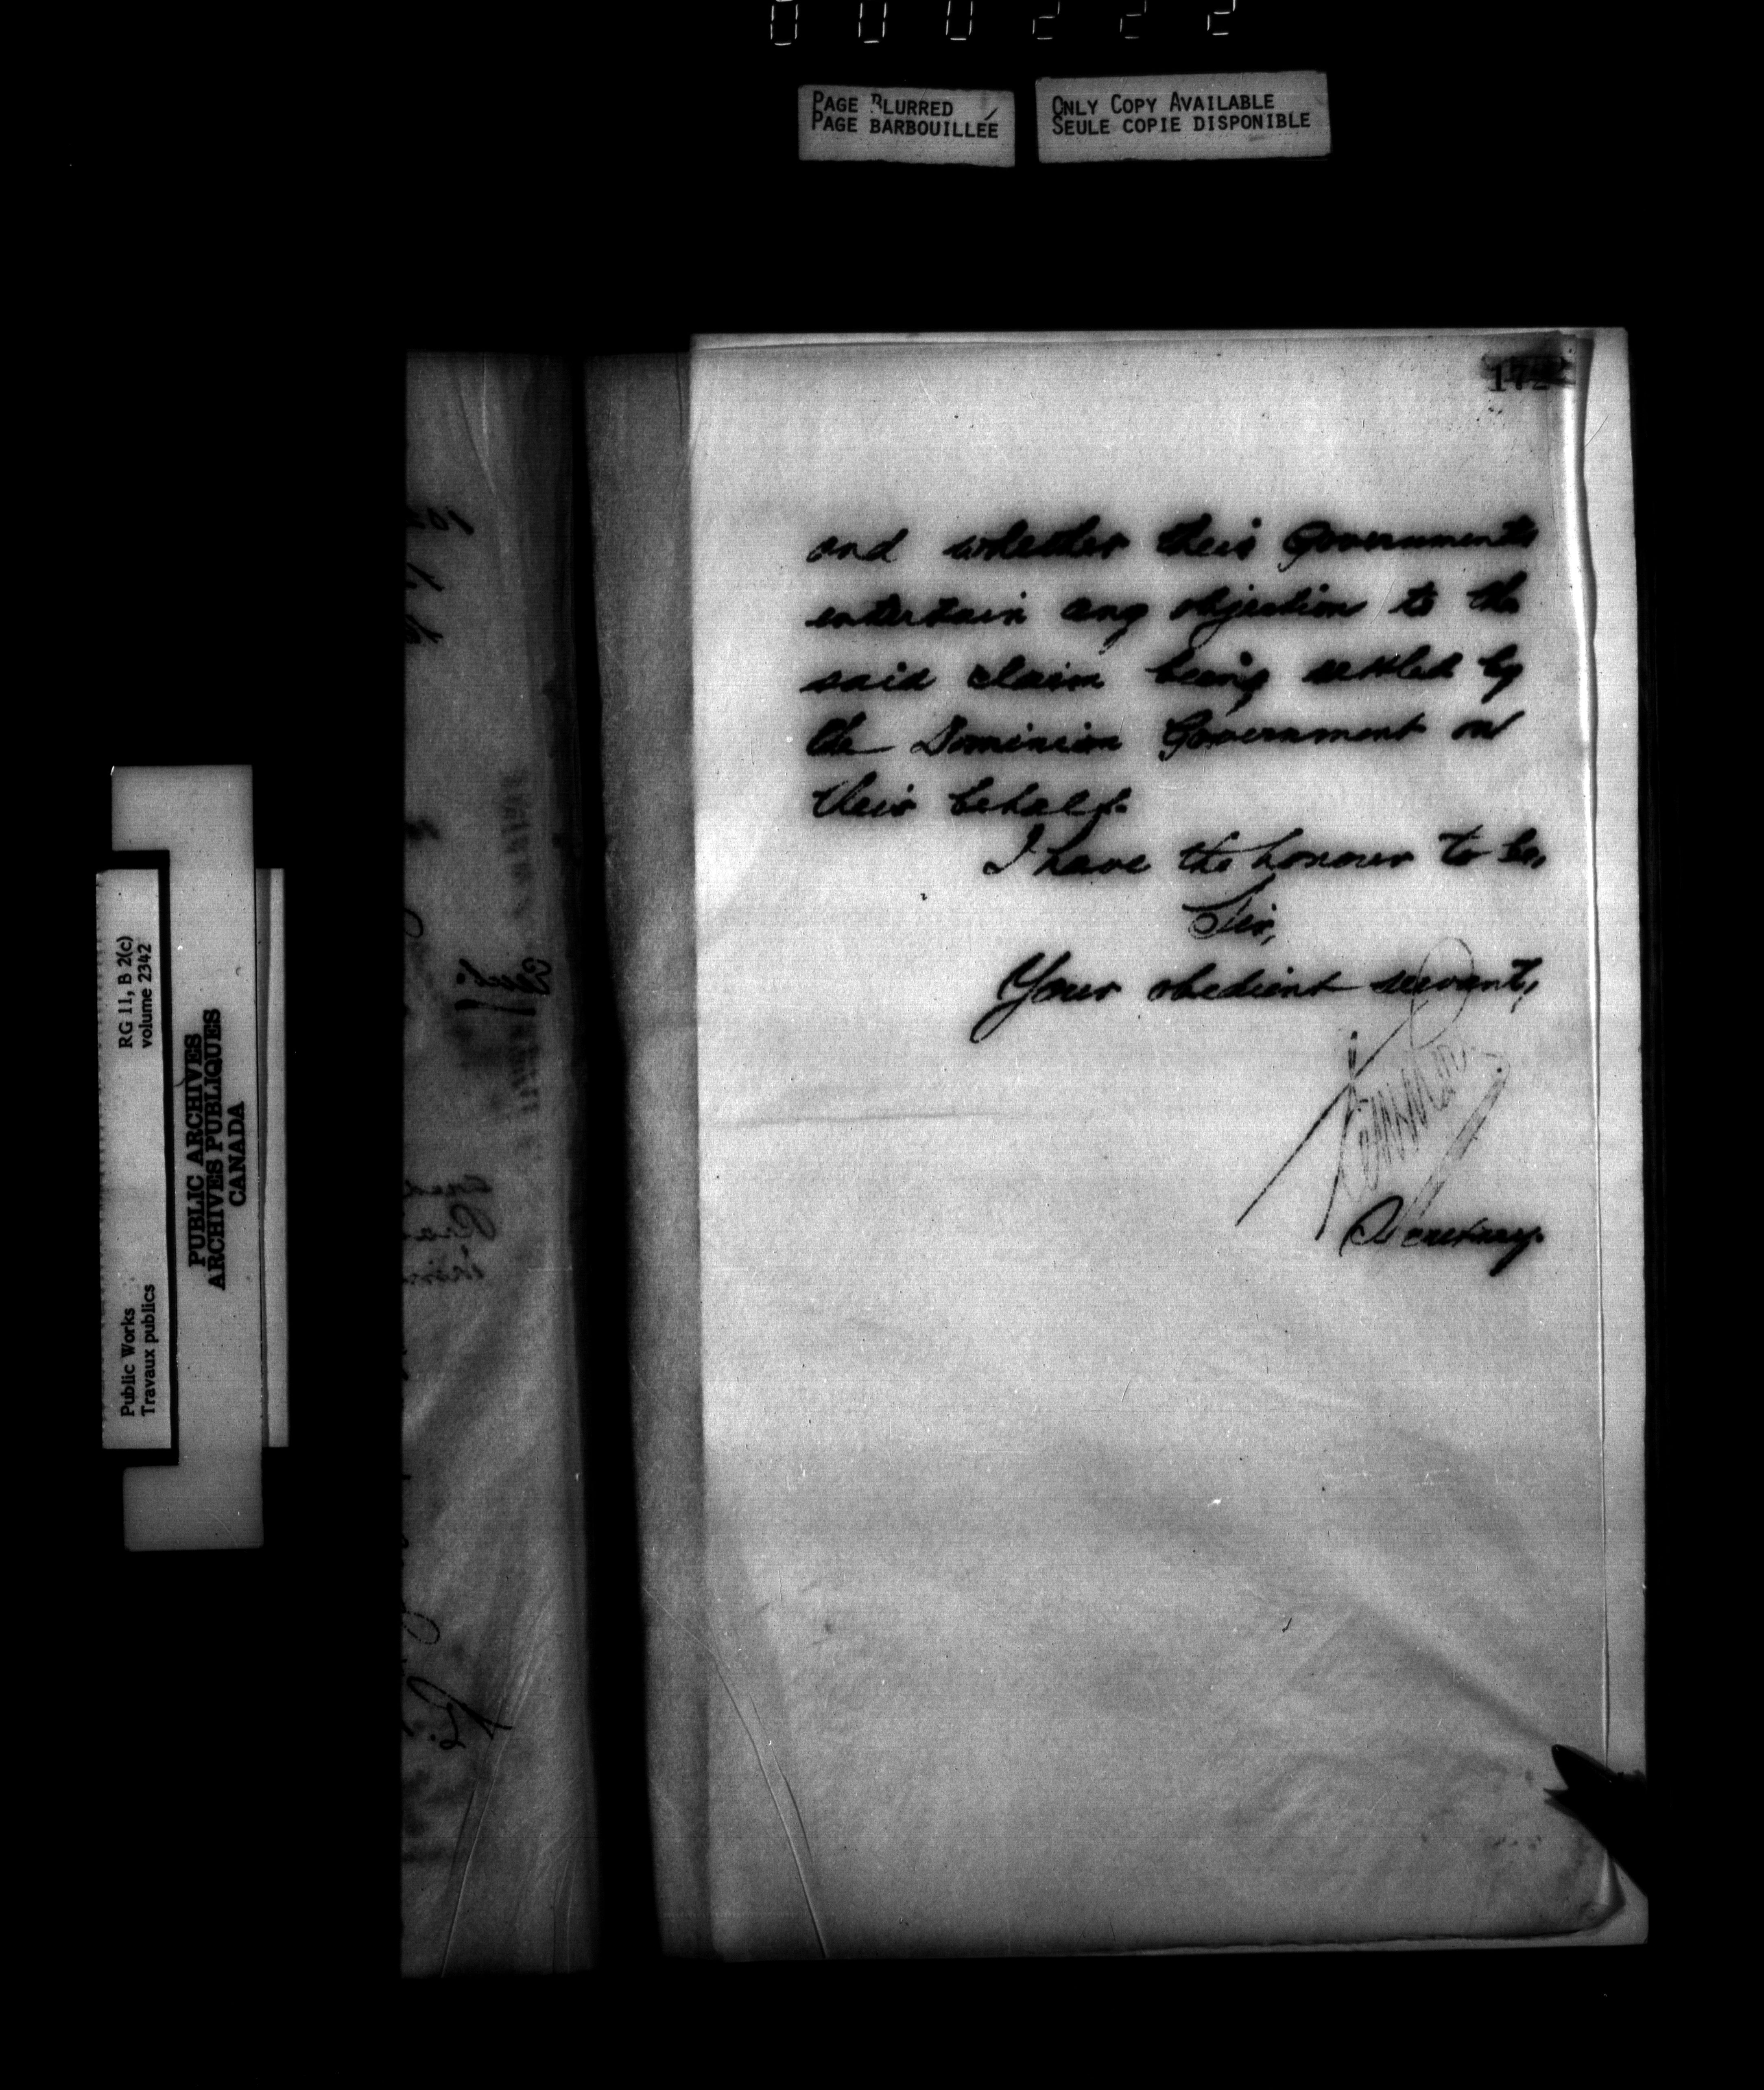 000222
PAGE BLURRED
PAGE BARBOUILLÉE
ONLY COPY AVAILABLE
SEULE COPIE DISPONIBLE
172
and whether their Governments
entertain any objection to the
said claim being settled by
the Dominion Government on
their behalf.
I have the honour to be,
Sir,
Your obedient servant,
Secretary.
RG 11, B 2(c)
volume 2342
Public Works
Travaux publics
PUBLIC ARCHIVES
ARCHIVES PUBLIQUES
CANADA